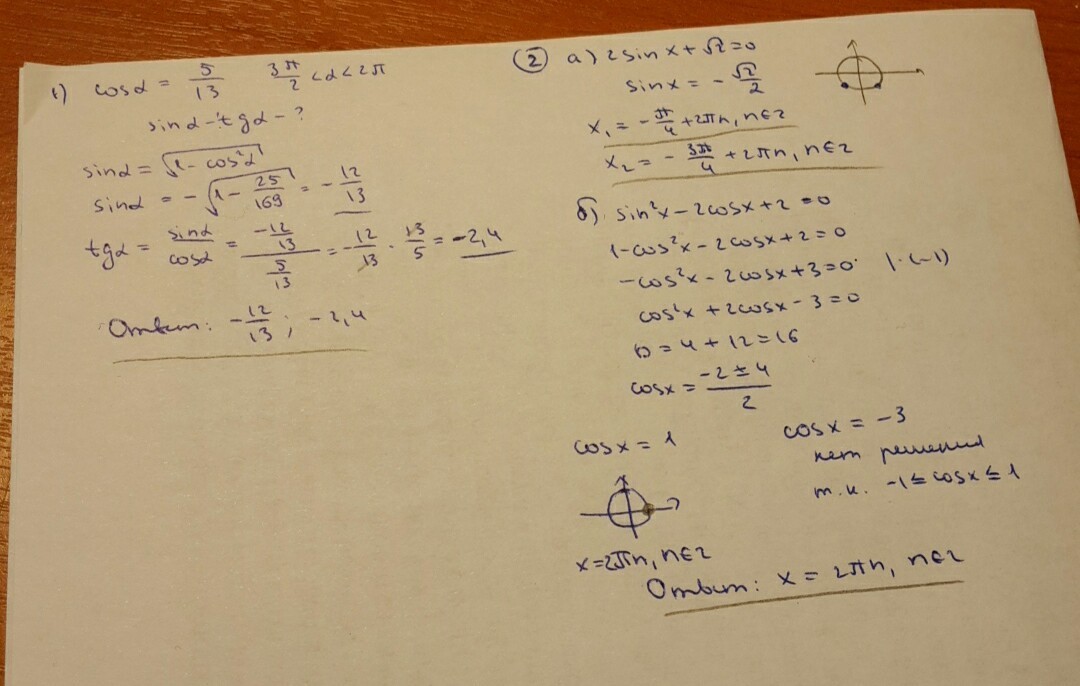 1) cosα = 5/13 3π/2 < α < 2π
sinα - tgα - ?
sinα = √1 - cos²α
sinα = - √1 - 25/169 = - 12/13
tgα = sinα/cosα = -12/13 / 5/13 = -12/13 · 13/5 = -2,4
Ответ: -12/13 ; -2,4
② а) 2sinx + √2 = 0
sinx = - √2/2
x₁ = - π/4 + 2πn, n∈z
x₂ = - 3π/4 + 2πn, n∈z
б) sin²x - 2cosx + 2 = 0
1 - cos²x - 2cosx + 2 = 0
-cos²x - 2cosx + 3 = 0 |·(-1)
cos²x + 2cosx - 3 = 0
D = 4 + 12 = 16
cosx = -2 ± 4 / 2
cosx = 1 cosx = -3
нет решения
т.к. -1 ≤ cosx ≤ 1
x = 2πn, n∈z
Ответ: x = 2πn, n∈z